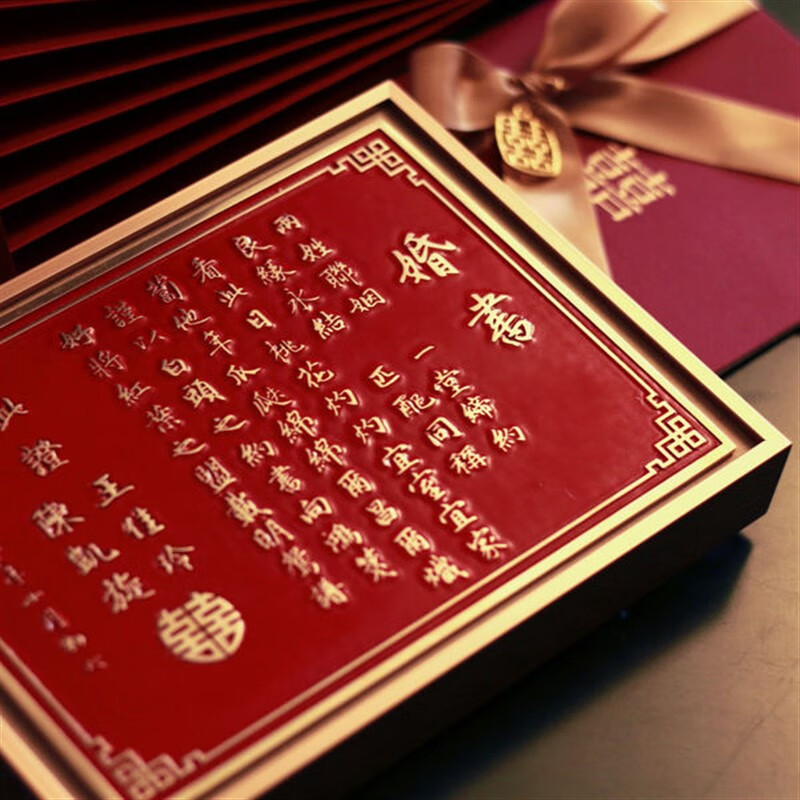 婚書
兩姓聯姻 一堂締約
良緣永結 匹配同稱
看此日桃花灼灼 宜室宜家
蔔他年瓜瓞綿綿 爾昌爾熾
謹以白頭之約 書向鴻箋
好將紅葉之盟 載明鴛譜
此證
王佳玲
陳凱旋
囍
囍